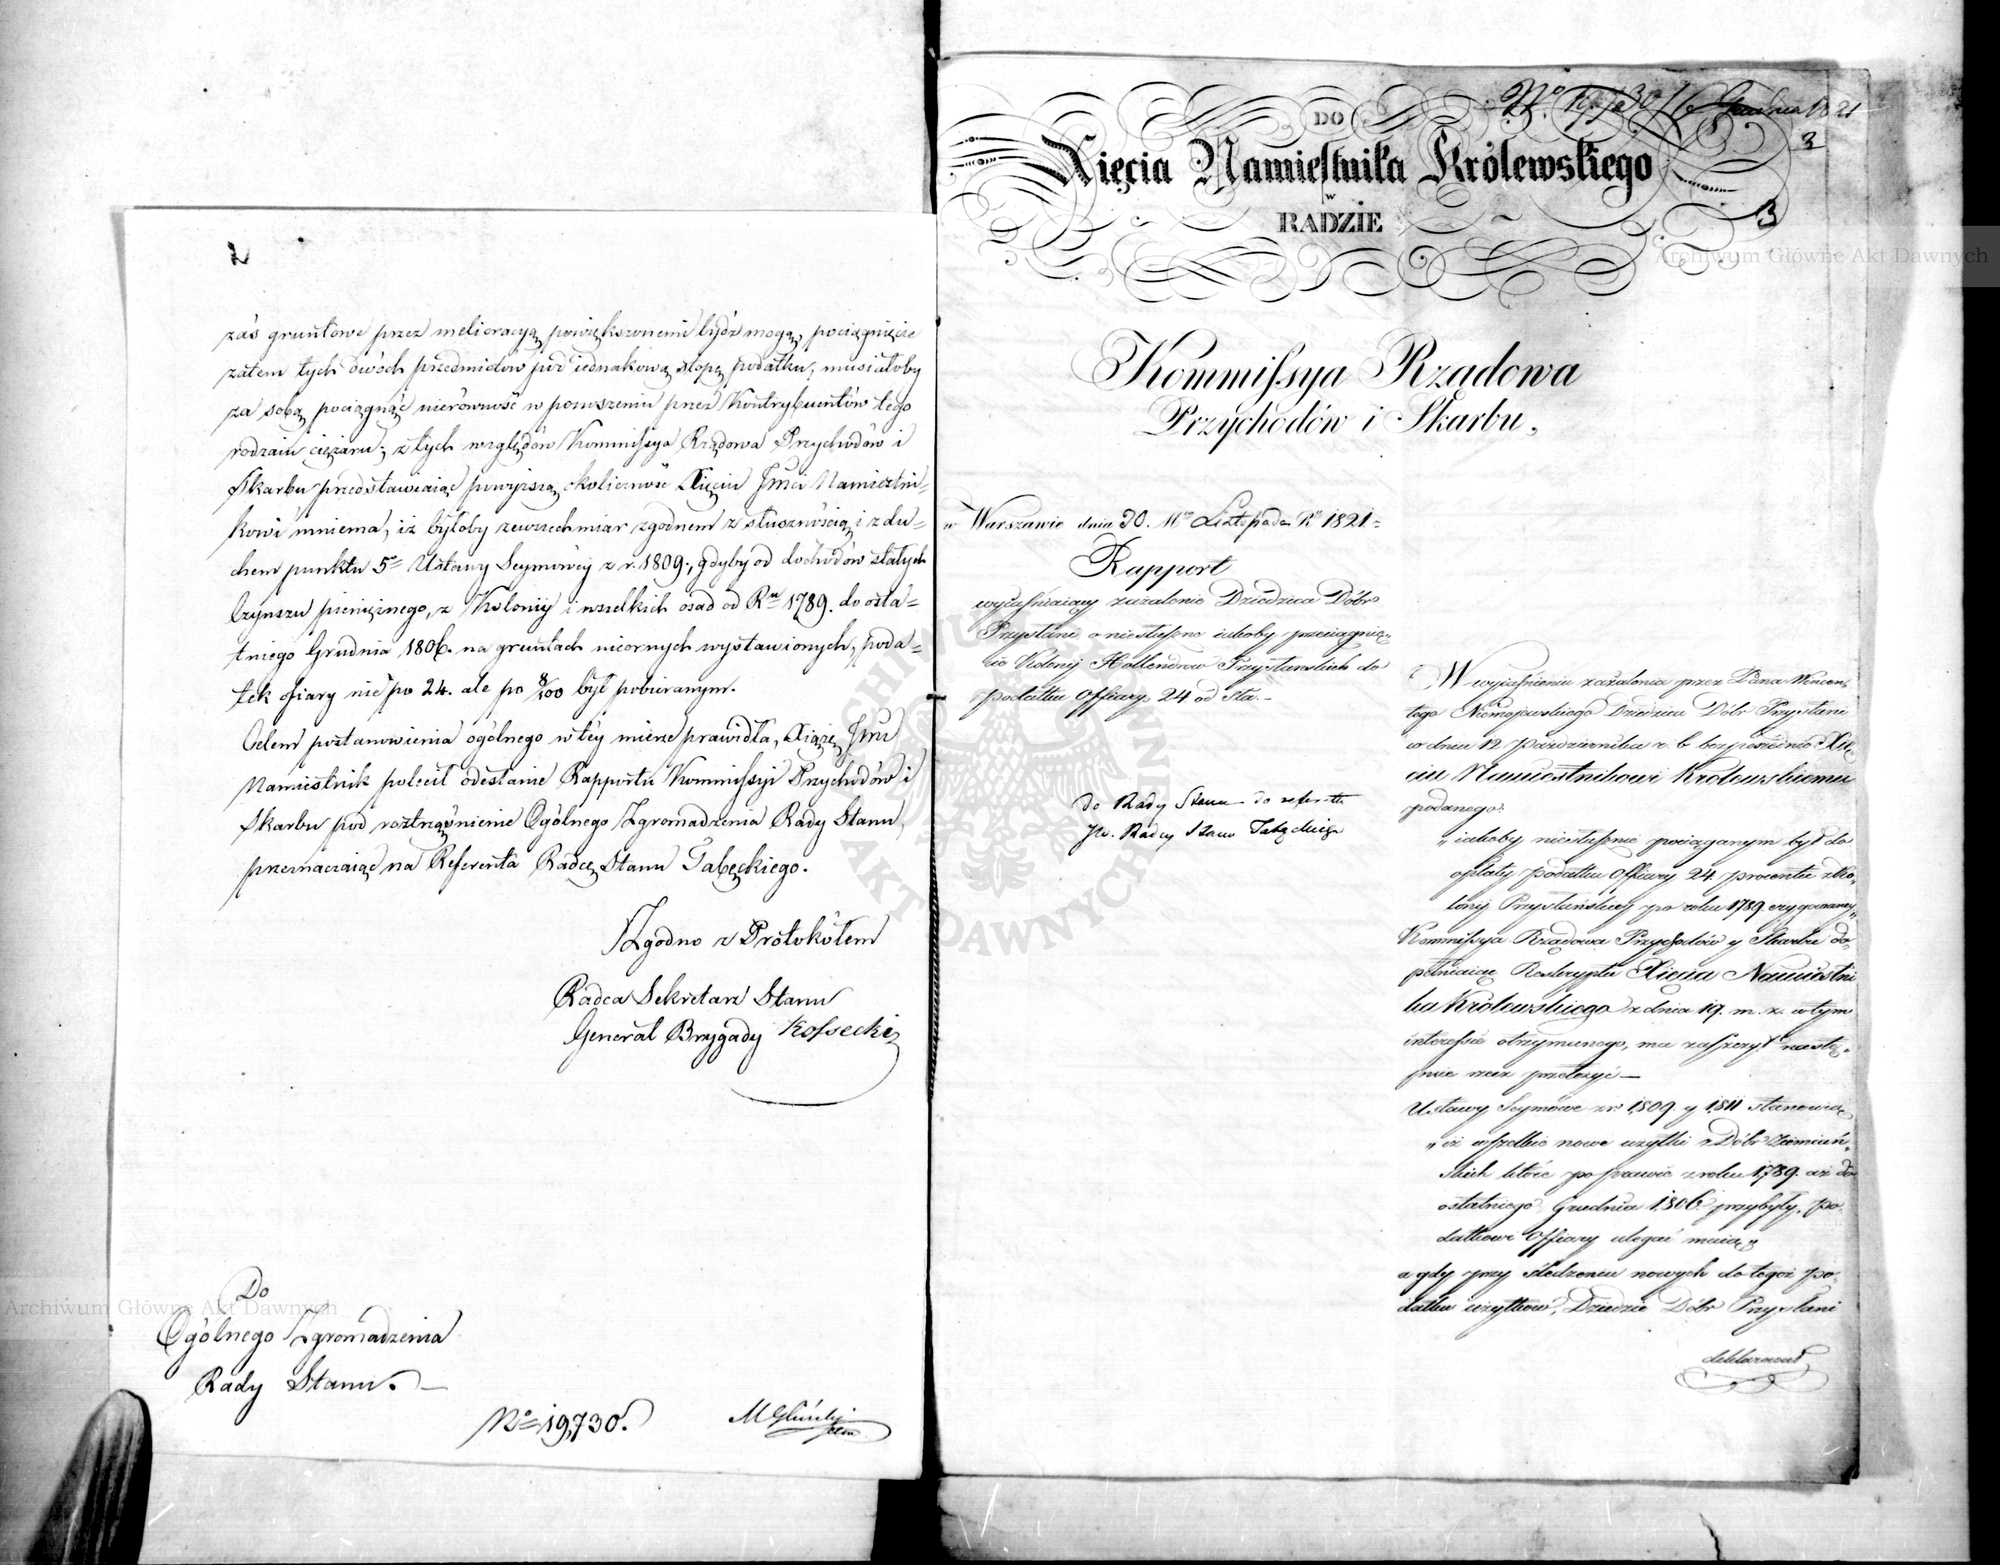 2
zaś gruntowe przez melioracyą powiększonemi bydź mogą, pociągnięcie
zatem tych dwóch przedmiotów pod iednakową stopę podatku, musiałoby
za sobą pociągnąć nierówność w ponoszeniu przez Kontrybuentów tego
rodzaiu ciężaru; z tych względów Kommissya Rządowa Przychodów i
Skarbu przedstawiaiąc powyższą okoliczność Xięciu Jmci Namiestni-
kowi mniema, iż byłoby zewszechmiar zgodnem z słusznością i z du-
chem punktu 5o Ustawy Seymowey z r. 1809., gdyby od dochodów stałych
Czynszu pieniężnego, z Kolonij i wszelkich osad od Ru 1789. do osta-
tniego Grudnia 1806. na gruntach nieornych wystawionych, poda-
tek ofiary nie po 24. ale po 8/100 był pobieranym.
Celem postanowienia ogólnego w tey mierze prawidła, Xiążę Jmć
Namiestnik polecił odesłanie Rapportu Kommissyi Przychodów i
Skarbu pod roztrząśnienie Ogólnego Zgromadzenia Rady Stanu,
przeznaczaiąc na Referenta Radcę Stanu Gałęckiego.
Zgodno z Protokółem
Radca Sekretarz Stanu
Generał Brygady Kossecki
Do
Ogólnego Zgromadzenia
Rady Stanu.
No 19,730.
No 19,730 16 Grudnia 1821
3
3
DO
Xięcia Namiestnika Królewskiego
w
RADZIE
Kommissya Rządowa
Przychodów i Skarbu,
w Warszawie dnia 30. Mca Listopada Ru 1821
Rapport
wyiaśniaiący zażalenie Dziedzica Dóbr
Przystani o niesłuszne iakoby pociągnię-
cie Kolonij Hollendrów Przystańskich do
podatku Offiary 24 od sta.
do Rady Stanu do referatu
JW. Radcy Stanu Gałęckiego
W wyiaśnieniu zażalenia przez Pana Wincen-
tego Niemojewskiego Dziedzica Dóbr Przystani
w dniu 12 Października r. b. bezpośrednio Xię-
ciu Namiestnikowi Królewskiemu
podanego:
„iakoby niesłusznie pociąganym był do
opłaty podatku Offiary 24. procentu z Ko-
lonij Przystańskiey po roku 1789 erygowaney„
Kommissya Rządowa Przychodów y Skarbu do-
pełniaiąc Reskryptu Xięcia Namiestni
ka Królewskiego z dnia 19. m. z. w tym
interessie otrzymanego, ma zaszczyt nastę-
pnie rzecz przełożyć —
Ustawy Seymowe z r. 1809. y 1811 stanowią
„iż wszelkie nowe użytki z Dóbr Ziemiań-
skich które po prawie z roku 1789. aż do
ostatniego Grudnia 1806. przybyły, po-
datkowi Offiary ulegać maią„
a gdy przy śledzeniu nowych do tegoż po-
datku użytków, Dziedzic Dóbr Przystani
deklarował
Archiwum Główne Akt Dawnych
Archiwum Główne Akt Dawnych
ARCHIWUM GŁÓWNE AKT DAWNYCH